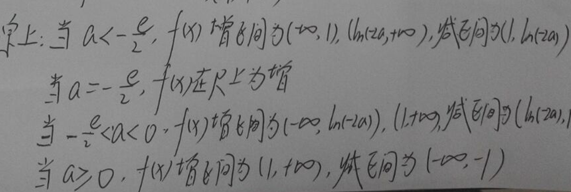 综上:当 a<-e/2, f(x)增区间为(-∞,1), (ln(-2a,+∞), 减区间为(1, ln(-2a))
当 a=-e/2, f(x)在R上为增
当 -e/2<a<0, f(x)增区间为(-∞, ln(-2a)), (1,+∞), 减区间为(ln(-2a),1
当 a≥0, f(x)增区间为(1,+∞), 减区间为(-∞,-1)